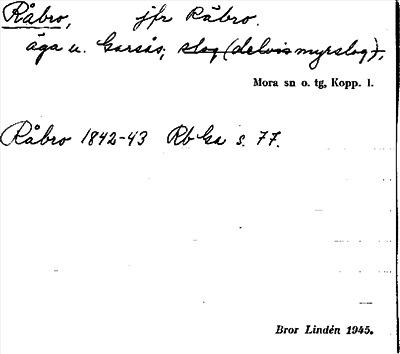 Råbro, jfr Råbro.
äga u. Garsås; slog (delvis myrslog),
Mora sn o. tg, Kopp. l.
Råbro 1842-43 Rb Ga s. 77.
Bror Lindén 1945.